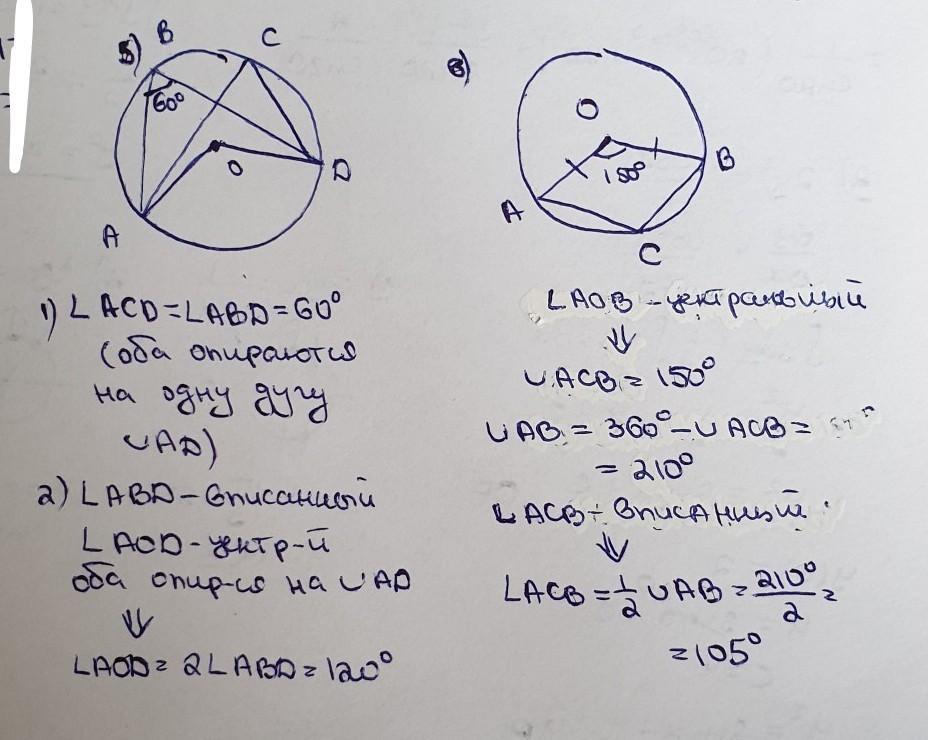 б)
B
C
60°
O
D
A
1) ∠ACD=∠ABD=60°
(оба опираются
на одну дугу
∪AD)
2) ∠ABD-вписанный
∠AOD-центр-й
оба опир-ся на ∪AD
⇓
∠AOD=2∠ABD=120°
в)
O
150°
B
A
C
∠AOB-центральный
⇓
∪ACB=150°
∪AB=360°-∪ACB=
=210°
∠ACB-вписанный
⇓
∠ACB=1/2∪AB=210°/2=
=105°